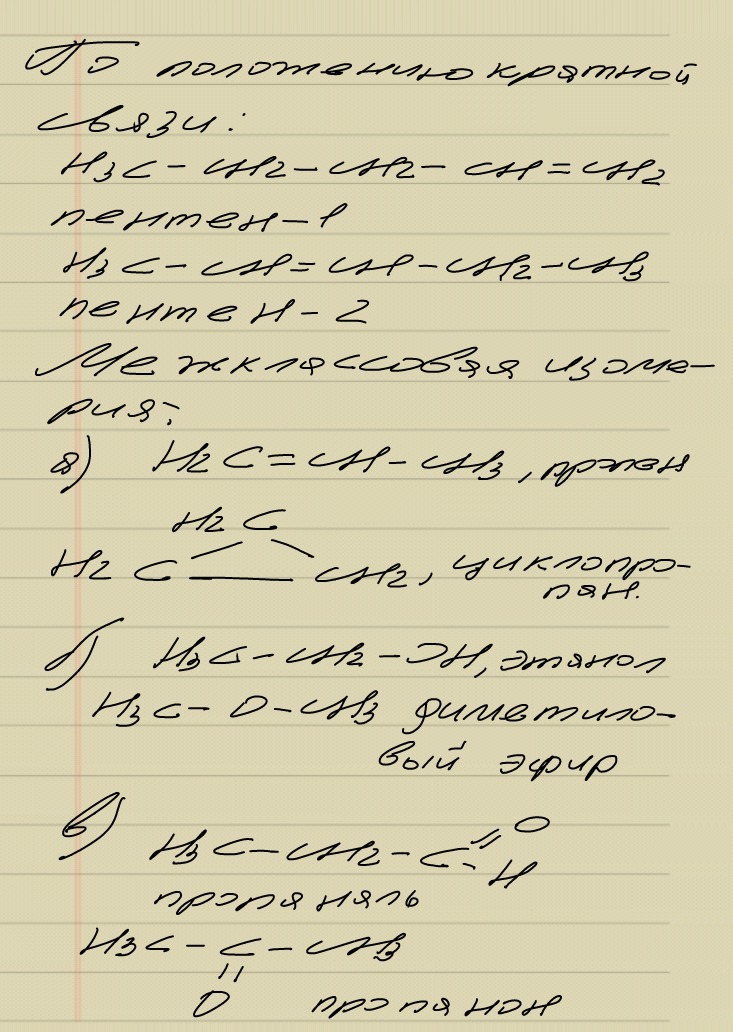 По положению кратной
связи:
H3C - CH2 - CH2 - CH = CH2
пентен-1
H3C - CH = CH - CH2 - CH3
пентен-2
Межклассовая изоме-
рия:
а) H2C = CH - CH3, пропен
H2C
H2C — CH2, циклопро-
пан.
б) H3C - CH2 - OH, этанол
H3C - O - CH3 диметило-
вый эфир
в) H3C - CH2 - C = O
- H
пропаналь
H3C - C - CH3
||
O пропанон